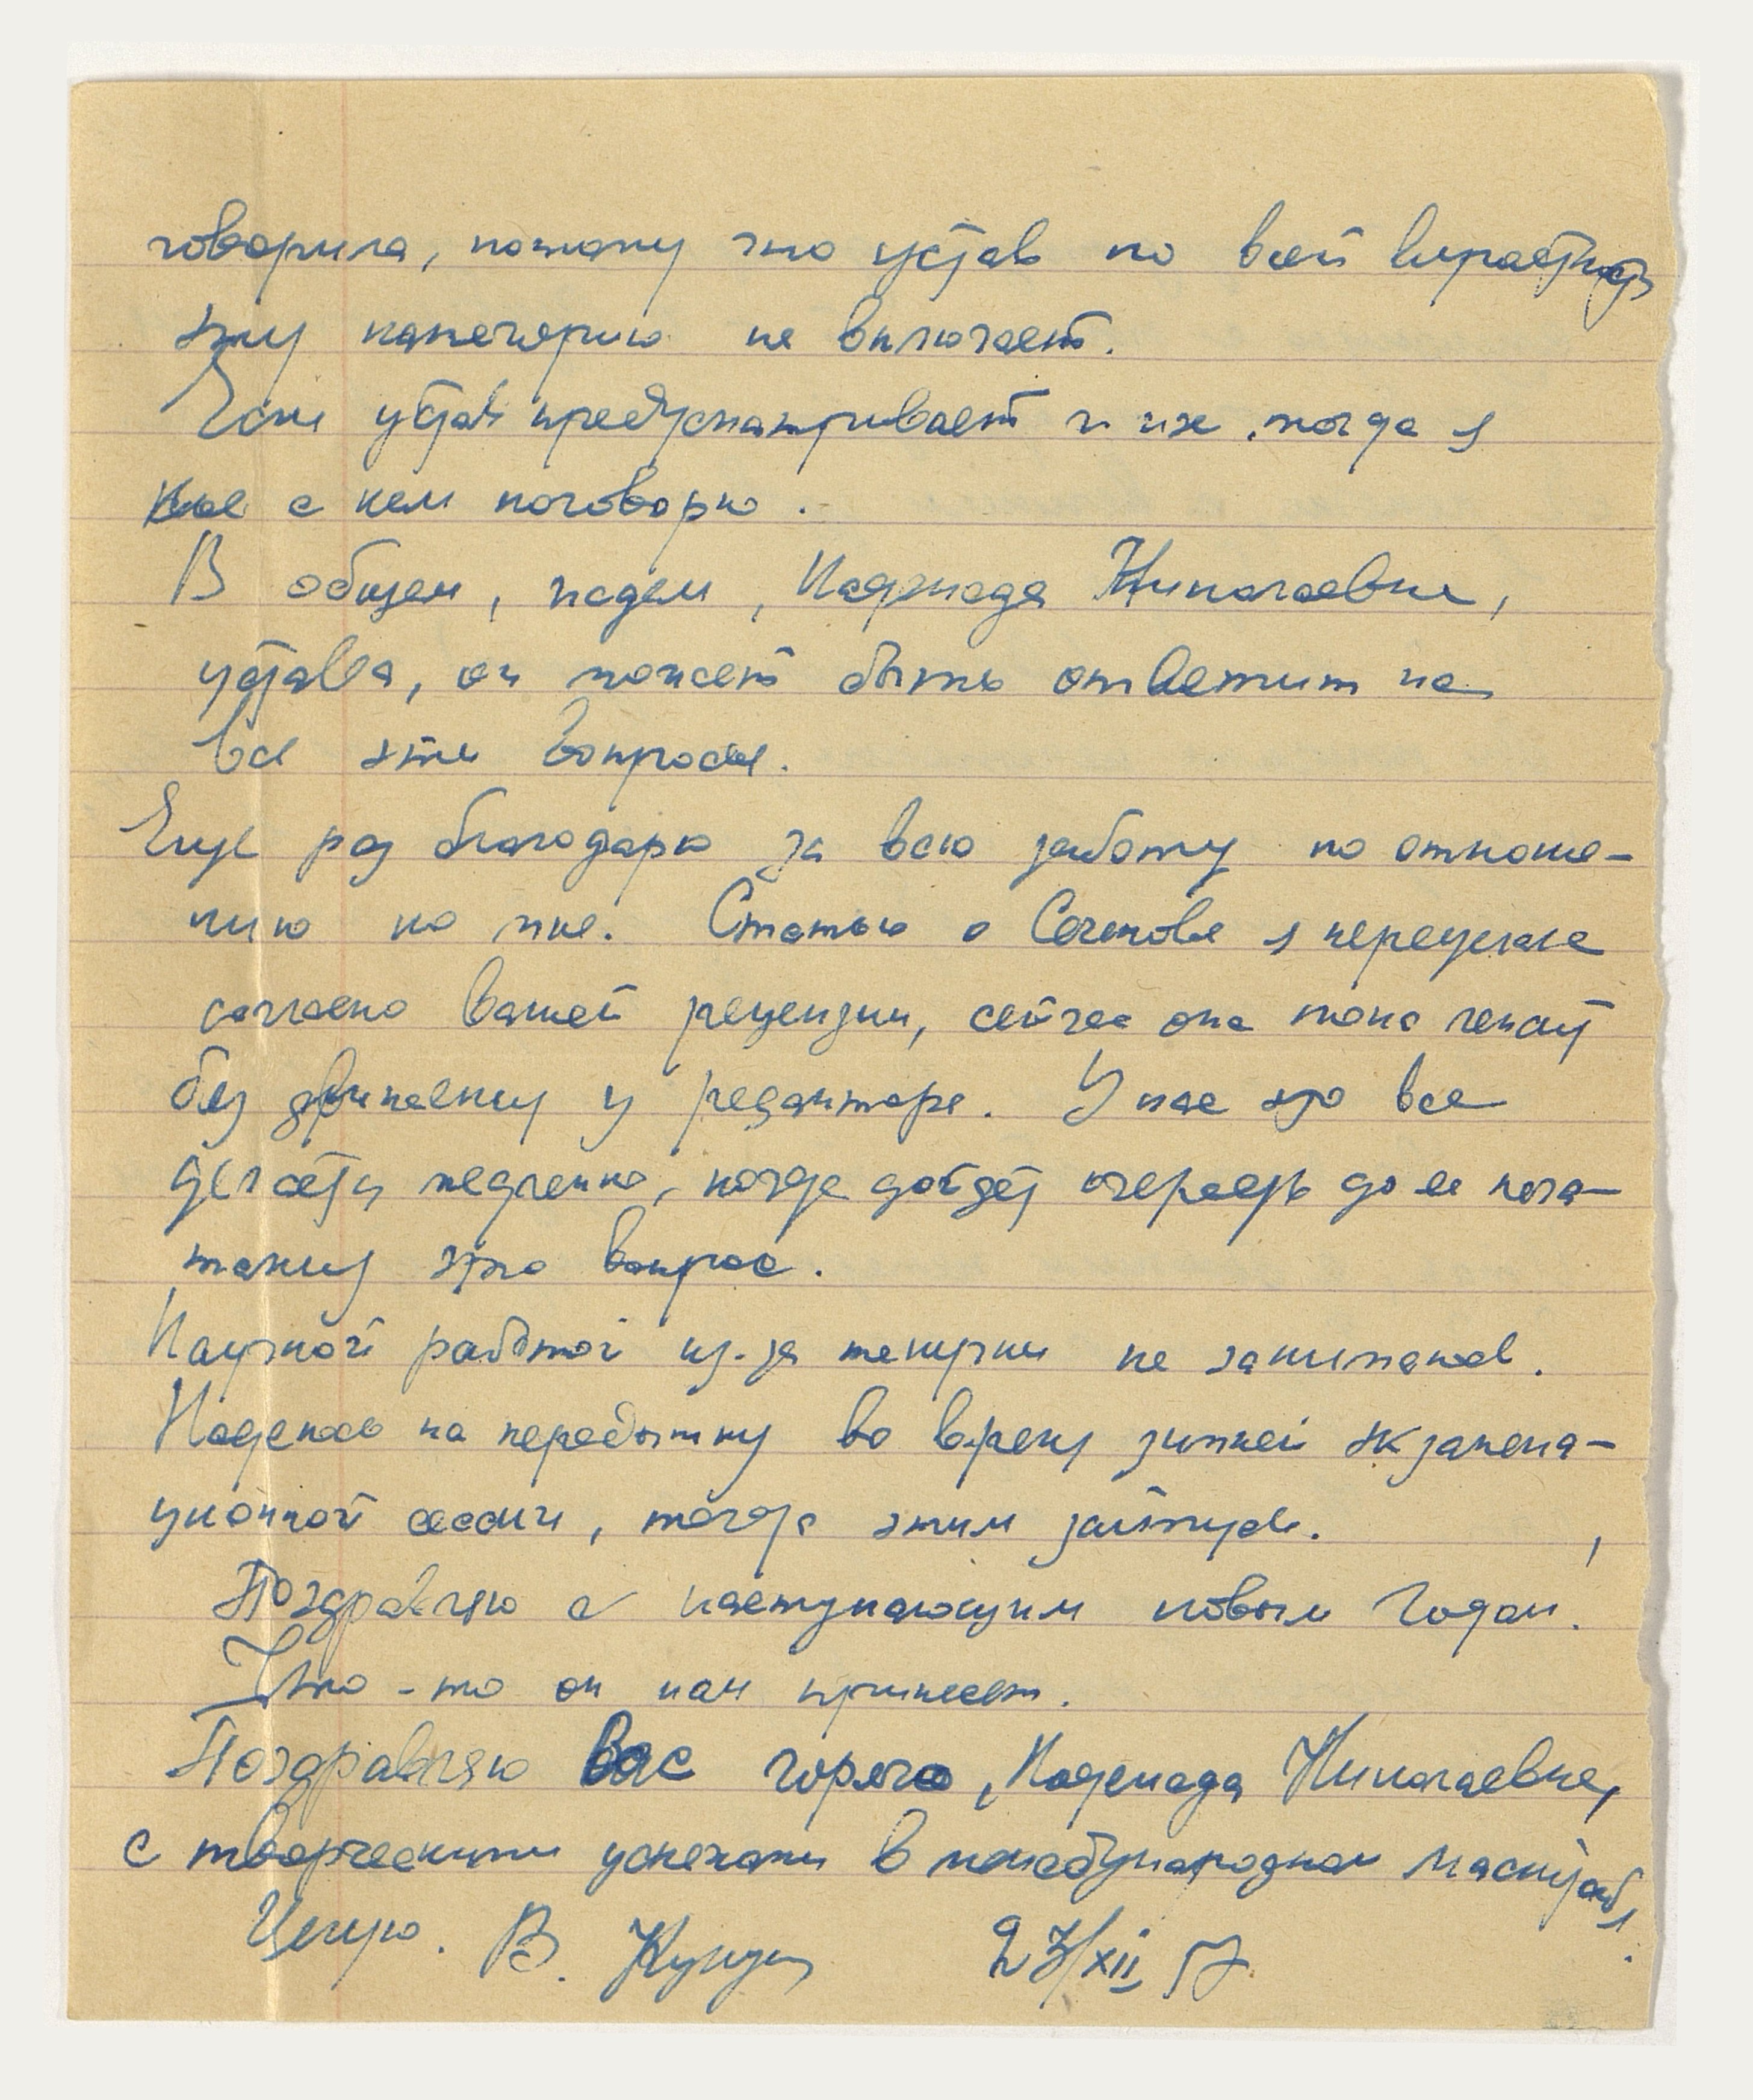 говорила, потому что устав по всей вероятность
эту категорию не включает.
Если устав предусматривает и их, тогда я
кое с кем поговорю.
В общем, ждем, Надежда Николаевна,
устава, он может быть ответит на
все эти вопросы.
Еще раз благодарю за всю заботу по отноше-
нию ко мне. Статью о Сеченове я переделала
согласно вашей рецензии, сейчас она пока лежит
без движения у редактора. У нас это все
делается медленно, когда дойдет очередь до ее печа-
танию это вопрос.
Научной работой из-за текучки не занималась.
Надеюсь на передышку во время зимней экзамена-
ционной сессии, тогда этим займусь.
Поздравляю с наступающим новым годом.
Что-то он нам принесет.
Поздравляю Вас горячо, Надежда Николаевна,
с творческими успехами в международном масштабе.
Целую. В. 27/XII 57